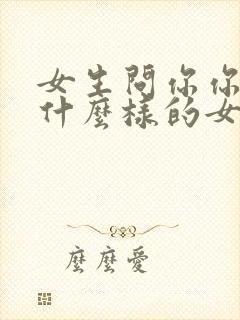 女生問你你
什麼樣的女
麼麼愛